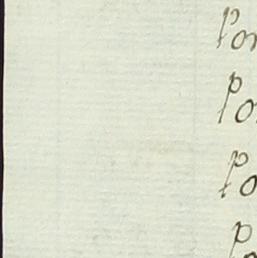 Por
Po
Po
P